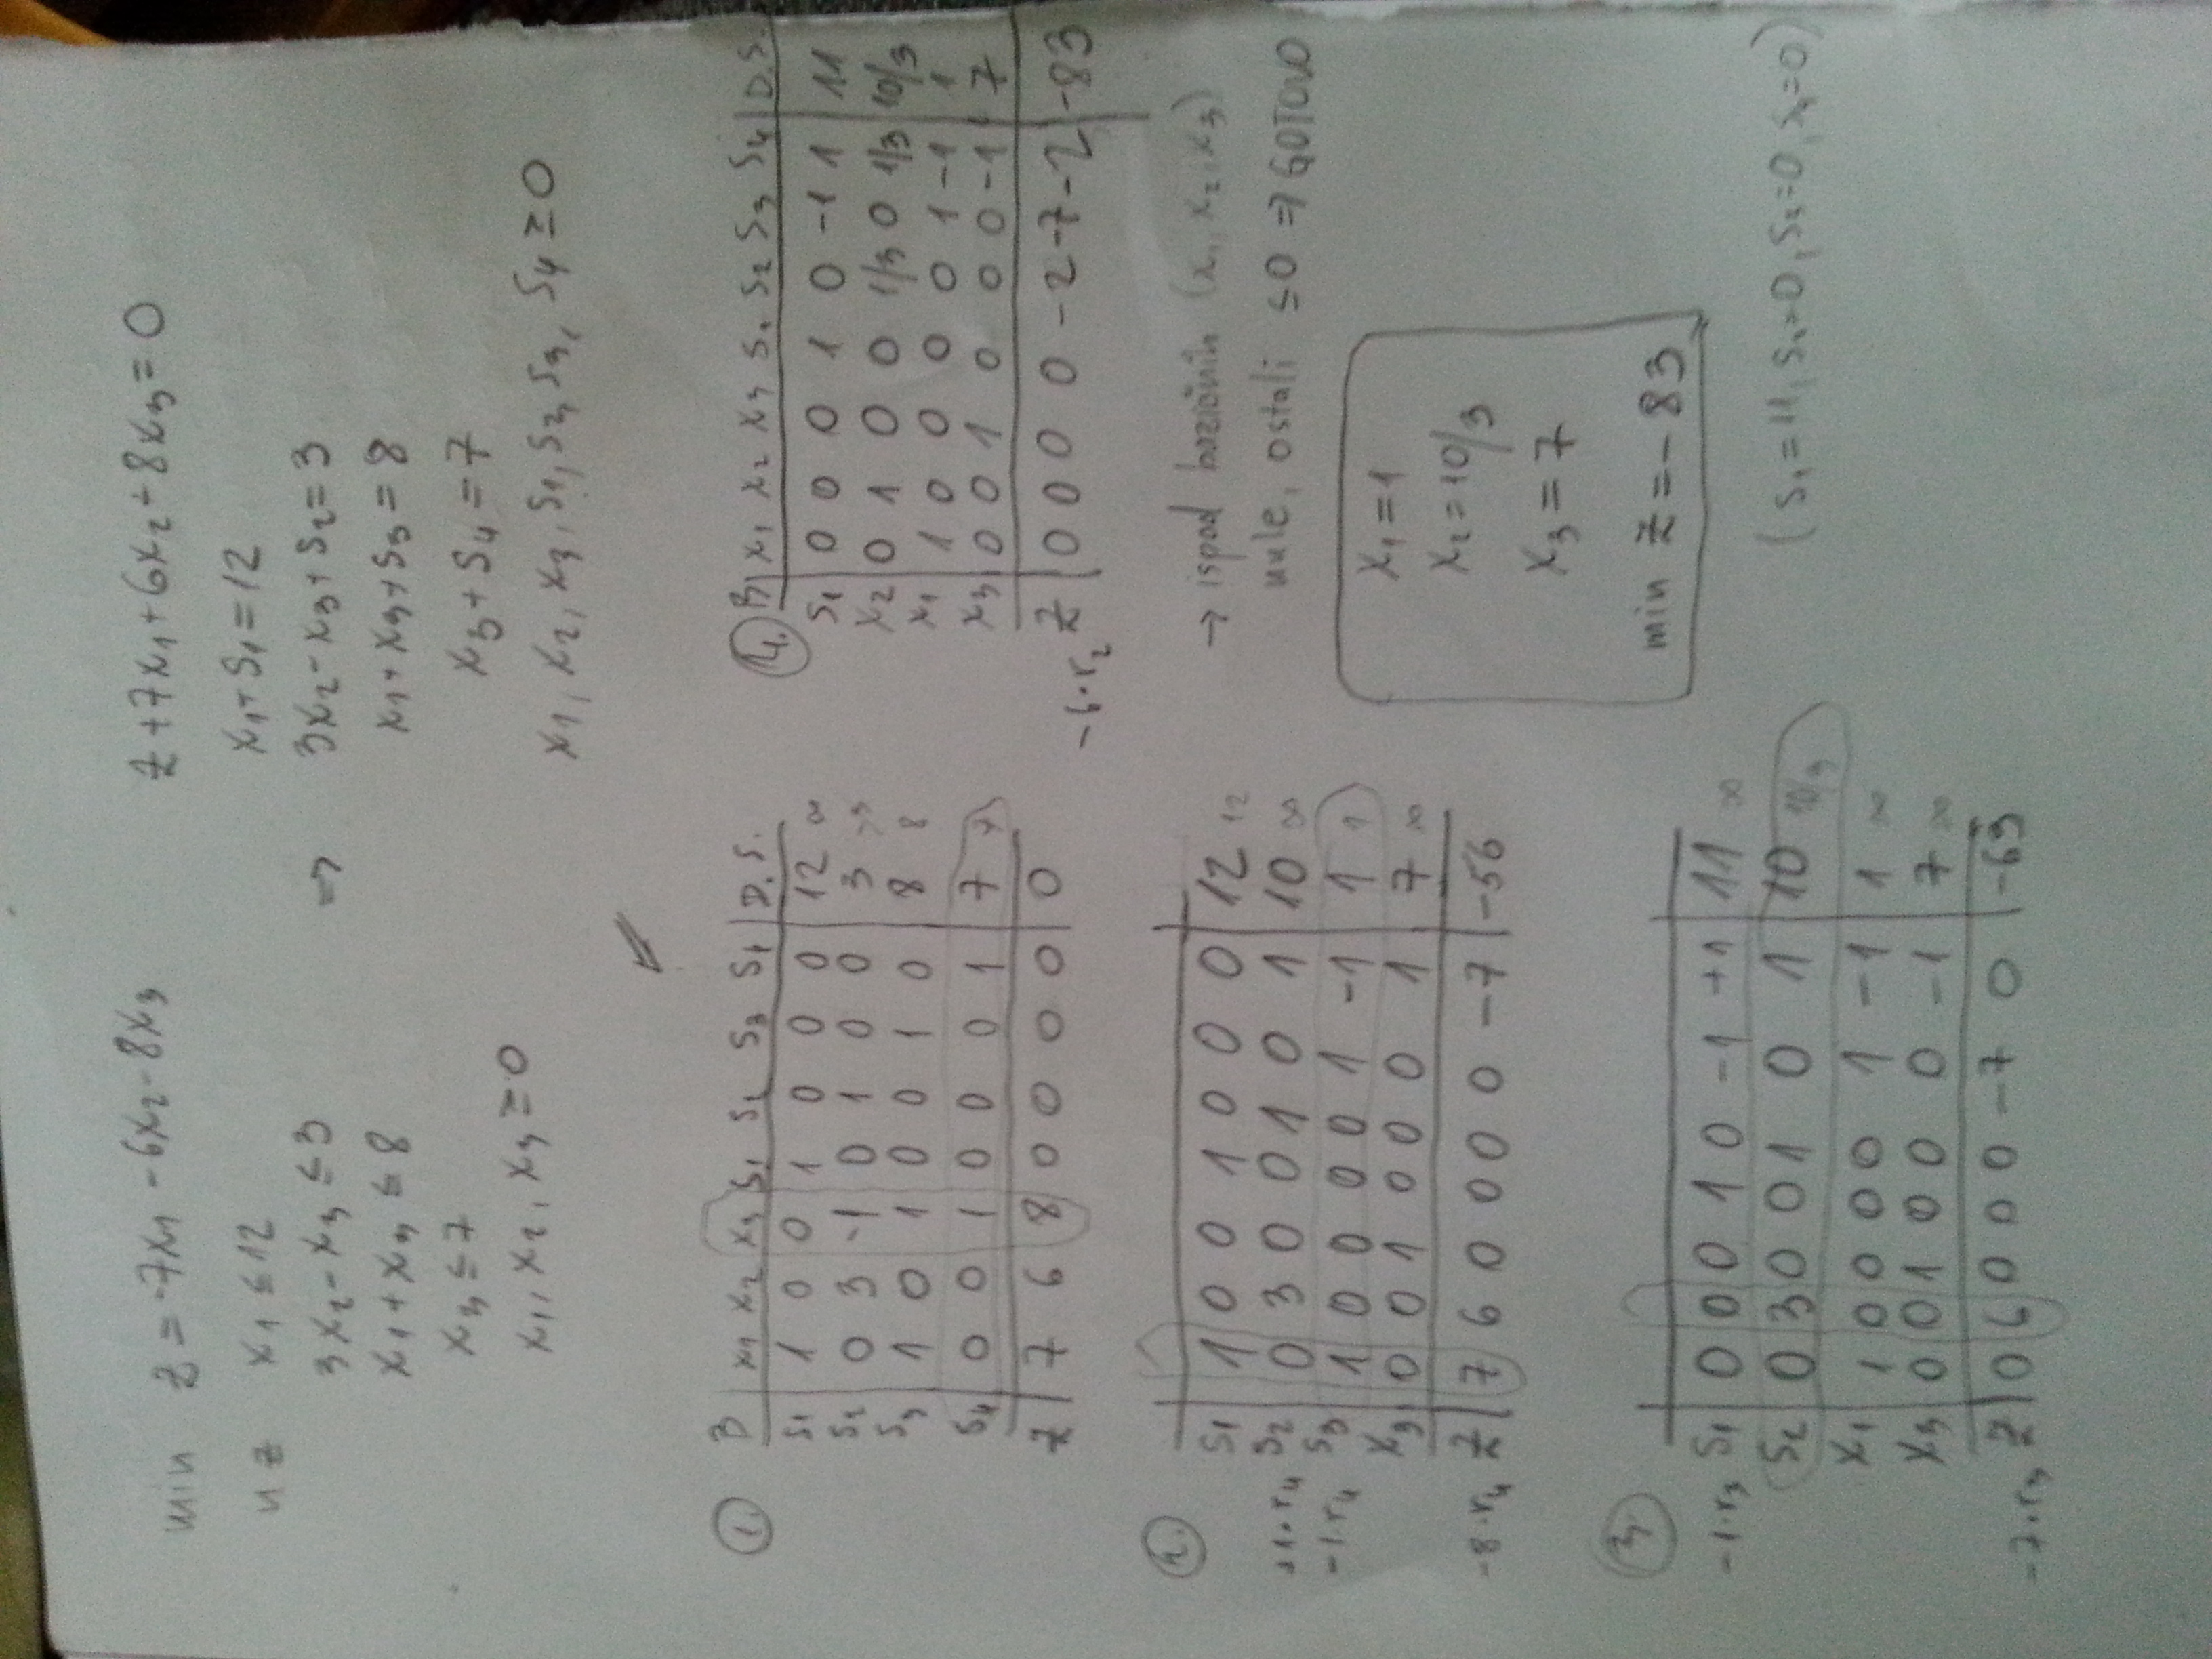 min z = -7x₁ - 6x₂ - 8x₃
u z x₁ ≤ 12
3x₂ - x₃ ≤ 3
x₁ + x₃ ≤ 8
x₃ ≤ 7
x₁, x₂, x₃ ≥ 0
⇒
z + 7x₁ + 6x₂ + 8x₃ = 0
x₁ + s₁ = 12
3x₂ - x₃ + s₂ = 3
x₁ + x₃ + s₃ = 8
x₃ + s₄ = 7
x₁, x₂, x₃, s₁, s₂, s₃, s₄ ≥ 0
1.
B x₁ x₂ x₃ s₁ s₂ s₃ s₄ D.S.
s₁ 1 0 0 1 0 0 0 12 ∞
s₂ 0 3 -1 0 1 0 0 3 -3
s₃ 1 0 1 0 0 1 0 8 8
s₄ 0 0 1 0 0 0 1 7 7
z 7 6 8 0 0 0 0 0
2.
s₁ 1 0 0 1 0 0 0 12 12
+1·r₄ s₂ 0 3 0 0 1 0 1 10 ∞
-1·r₄ s₃ 1 0 0 0 0 1 -1 1 1
x₃ 0 0 1 0 0 0 1 7 ∞
-8·r₄ z 7 6 0 0 0 0 -7 -56
3.
-1·r₃ s₁ 0 0 0 1 0 -1 +1 11 ∞
s₂ 0 3 0 0 1 0 1 10 10/3
x₁ 1 0 0 0 0 1 -1 1 ∞
x₃ 0 0 1 0 0 0 -1 7 ∞
-7·r₃ z 0 6 0 0 0 -7 0 -63
4.
B x₁ x₂ x₃ s₁ s₂ s₃ s₄ D.S.
s₁ 0 0 0 1 0 -1 1 11
x₂ 0 1 0 0 1/3 0 1/3 10/3
x₁ 1 0 0 0 0 1 -1 1
x₃ 0 0 1 0 0 0 -1 7
-6·r₂ z 0 0 0 0 -2 -7 -2 -83
→ ispod bazičnih (x₁, x₂, x₃)
nule, ostali ≤ 0 ⇒ GOTOVO
x₁ = 1
x₂ = 10/3
x₃ = 7
min z = -83
(s₁ = 11, s₂ = 0, s₃ = 0, s₄ = 0)